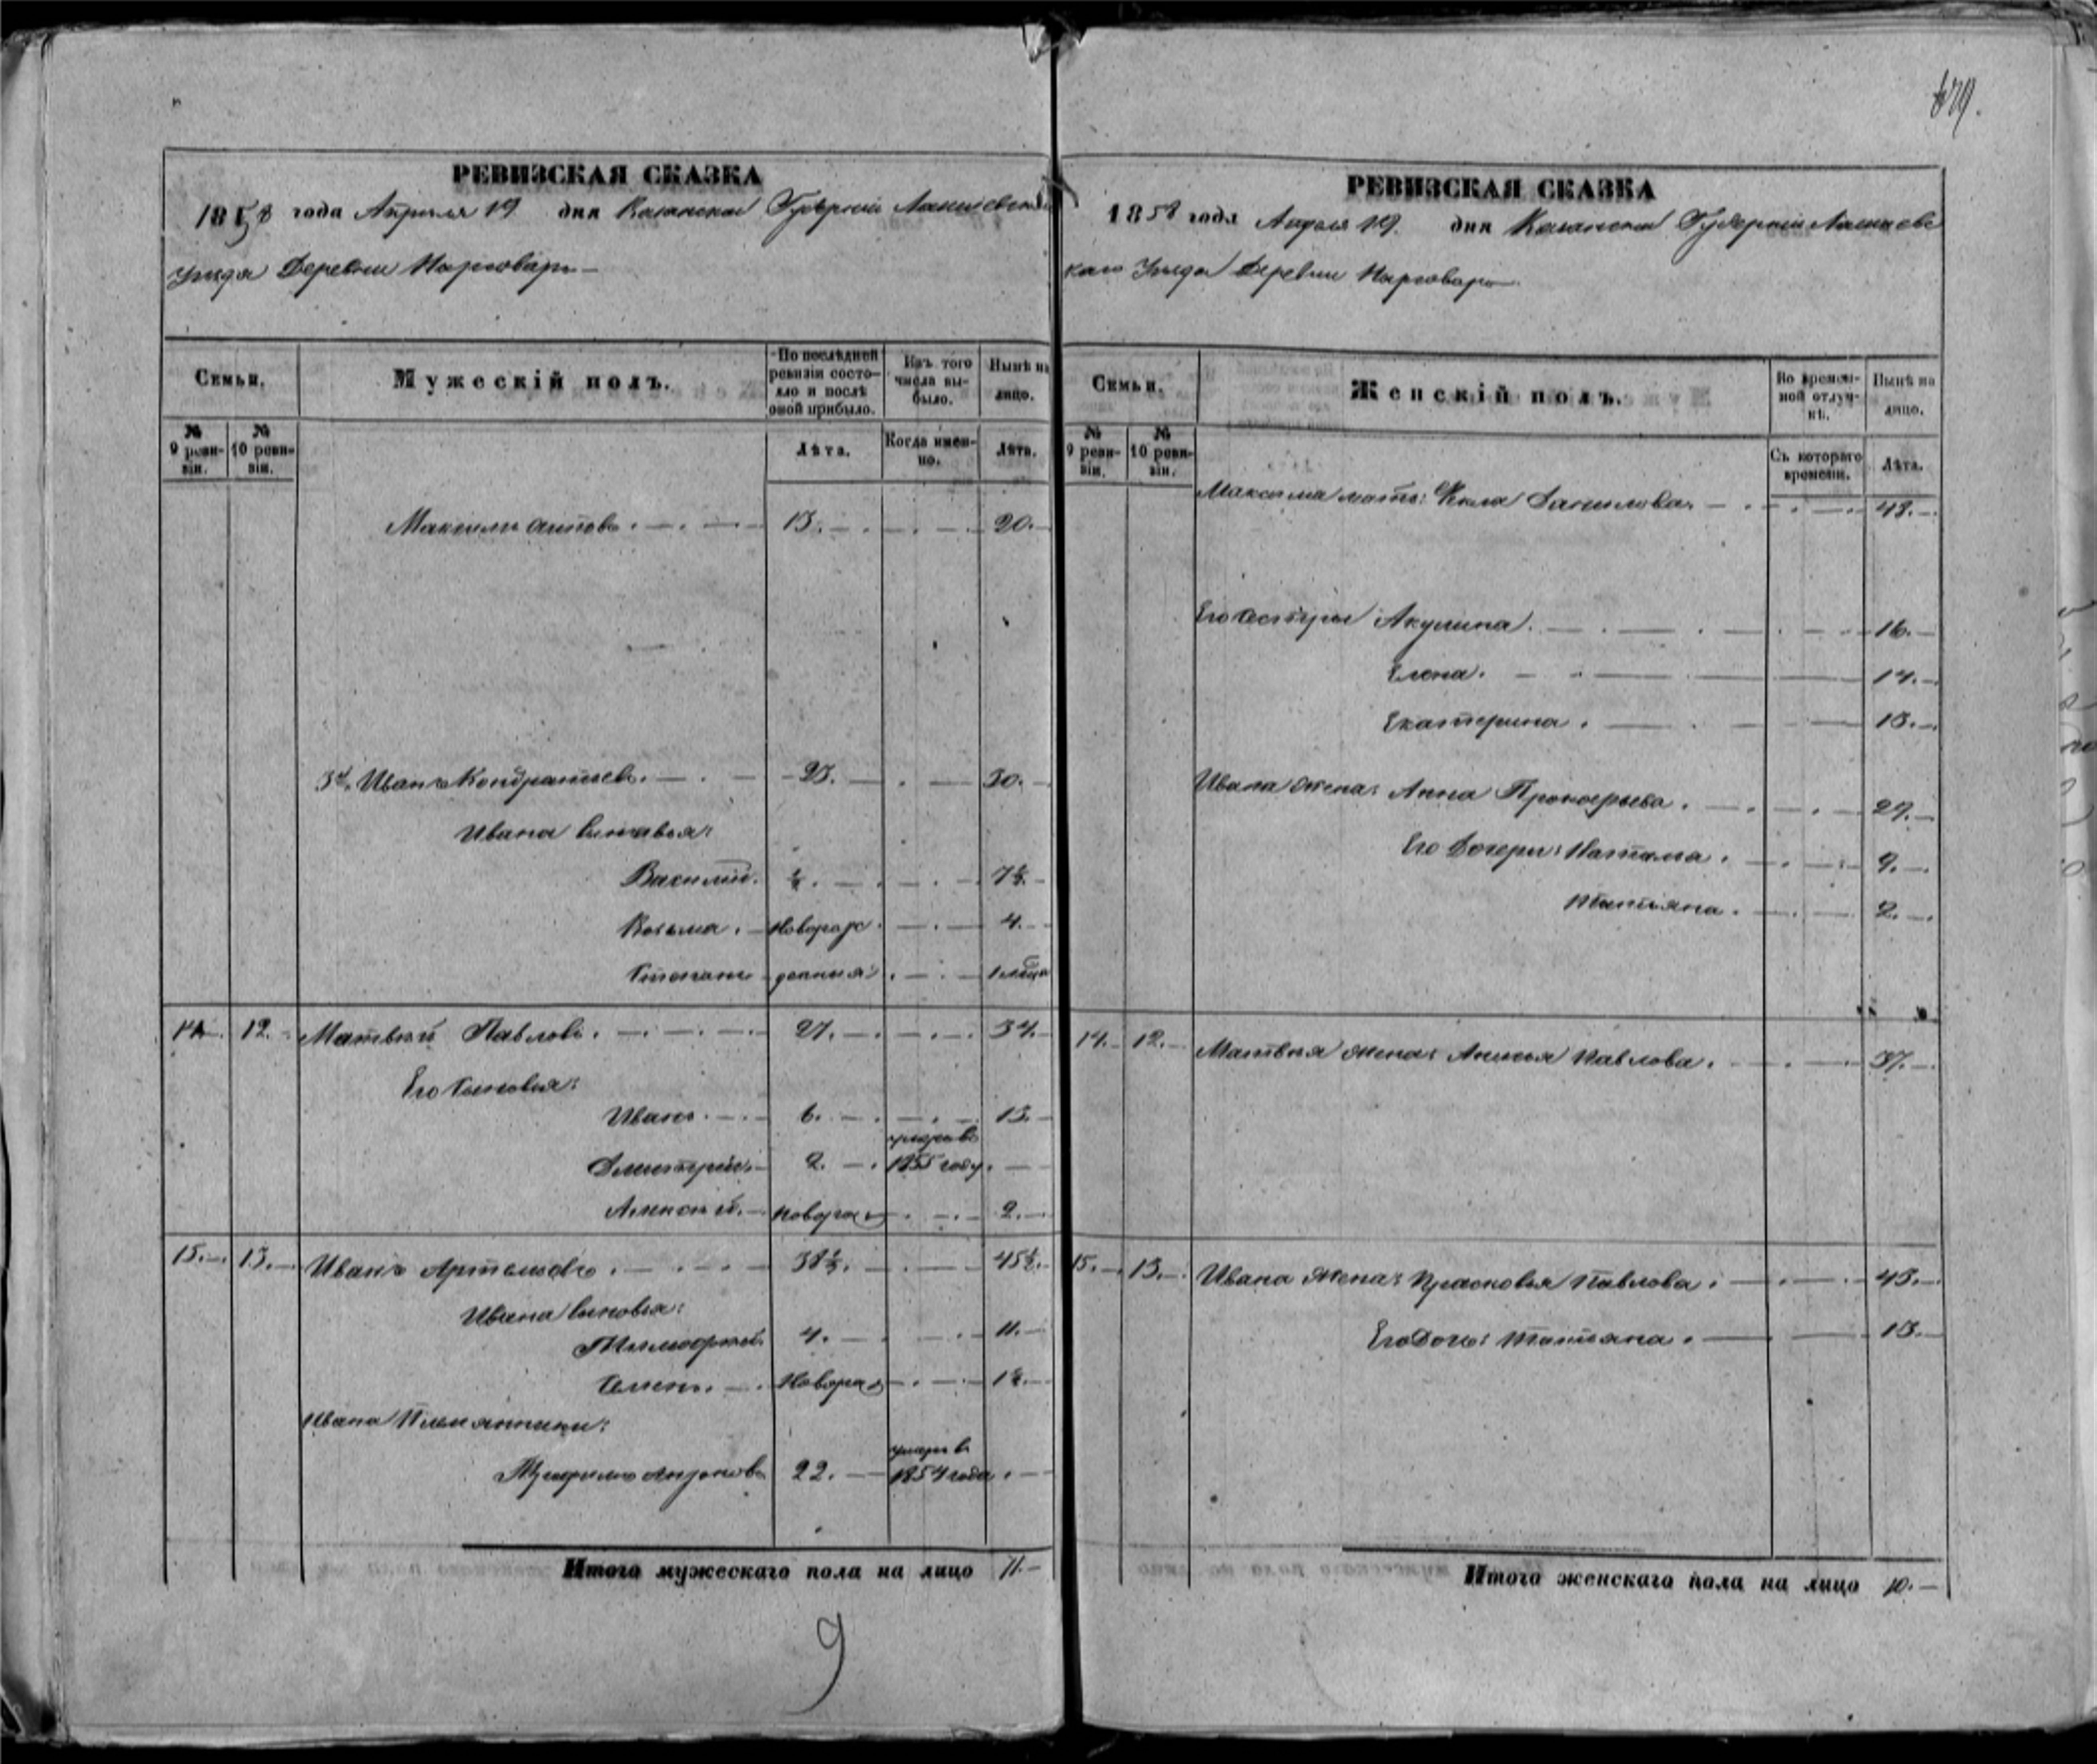 679.
РЕВИЗСКАЯ СКАЗКА
1858 года Апреля 19 дня Казанской Губернiи Лаишевскаго
уѣзда Деревни
Семьи. Мужескiй полъ. По послѣдней ревизiи состояло и послѣ оной прибыло. Изъ того числа выбыло. Нынѣ на лицо.
№ 9 ревизiи. № 10 ревизiи. Лѣта. Когда именно. Лѣта.
Максимъ 13. 20.
3й, Иванъ Кондратьевъ. 23. 30.
Ивана сыновья:
Василiй. ½. 7½.
Козьма. Новорож 4.
Степанъ денныя 1 мѣсца
14. 12. Матвѣй Павловъ. 27. 34.
Его сыновья:
Иванъ. 6. 13.
Дмитрiй. 2. умеръ въ 1855 году.
Алексѣй. новорож 2.
15. 13. Иванъ Артемьевъ. 38½. 45½.
Ивана сыновья:
Тимофѣй 4. 11.
Семенъ. Новорож 1½.
Ивана Племянники:
22. умеръ въ 1854 году.
Итого мужескаго пола на лицо 11.
9
РЕВИЗСКАЯ СКАЗКА
1858 года Апреля 19. дня Казанской Губернiи Лаишевс
каго Уѣзда Деревни
Семьи. Женскiй полъ. Во временной отлучкѣ. Нынѣ на лицо.
№ 9 ревизiи. № 10 ревизiи. Съ котораго времени. Лѣта.
Максима мать: Фекла Данилова. 48.
Его сестры Акулина. 16.
Елена. 14.
Екатерина. 13.
Ивана жена: Анна Прокофьева. 29.
Его Дочери: Наталья. 9.
Татьяна. 2.
14. 12. Матвѣя жена: Аксинья Павлова. 37.
15. 13. Ивана жена: Прасковья Павлова. 43.
Его Дочь: Татьяна. 13.
Итого женскаго пола на лицо 10.